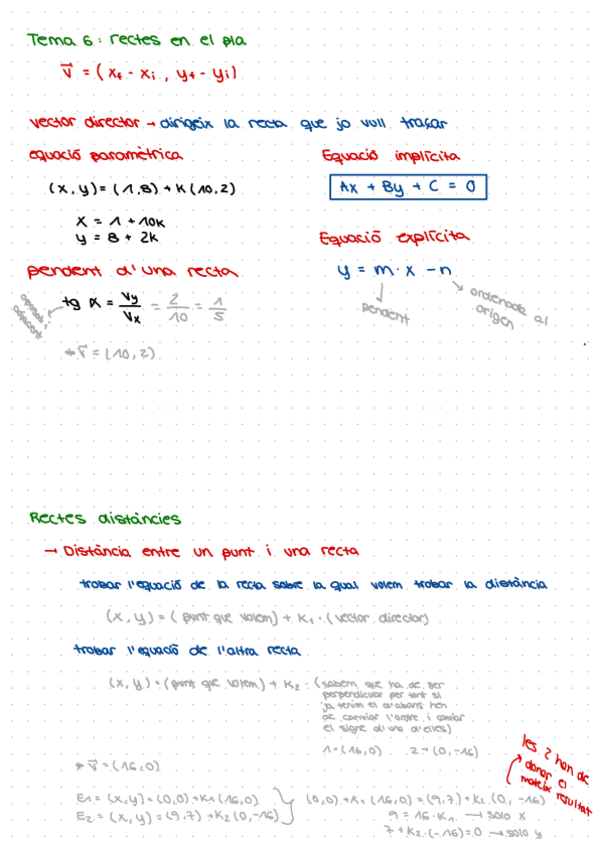 Tema 6: rectes en el pla
v⃗ = (x₊ - xᵢ , y₊ - yᵢ)
vector director → dirigeix la recta que jo vull traçar
equació paramètrica
(x,y) = (1,8) + K(10,2)
x = 1 + 10K
y = 8 + 2K
Equació implícita
Ax + By + C = 0
Equació explícita
y = m · x - n
pendent
ordenada al
origen
pendent d'una recta
tg α = Vy/Vx = 2/10 = 1/5
oposat i
adjacent
* v⃗ = (10,2)
Rectes distàncies
→ Distància entre un punt i una recta
trobar l'equació de la recta sobre la qual volem trobar la distància
(x,y) = (punt que volem) + K₁ · (vector director)
trobar l'equació de l'altra recta
(x,y) = (punt que volem) + K₂ · (sabem que ha de ser
perpendicular per tant si
ja tenim el d'abans hem
de canviar l'ordre i canviar
el signe d'una d'elles)
1→(16,0) 2→(0,-16)
* v⃗ = (16,0)
E1 = (x,y) = (0,0) + K1 (16,0)
E2 = (x,y) = (9,7) + K2 (0,-16)
(0,0) + K1 (16,0) = (9,7) + K2 (0, -16)
9 = 16·K1 → solo x
7 + K2·(-16) = 0 → solo y
les 2 han de
donar el
mateix resultat